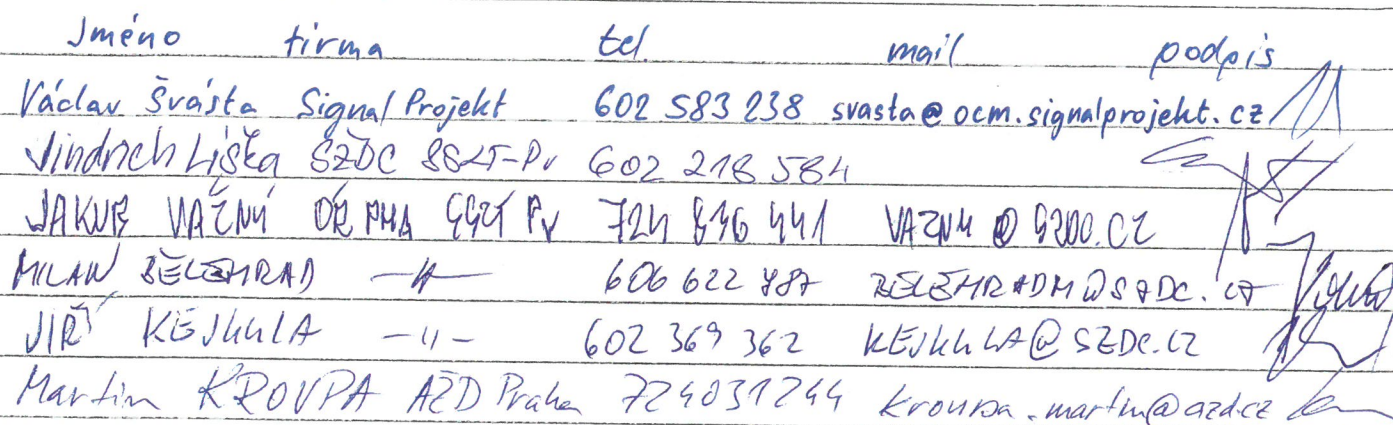 Jméno firma tel. mail podpis
Václav Švásta Signal Projekt 602 583 238 svasta@ocm.signalprojekt.cz
Jindrich Liška SŽDC SSZT-Pv 602 218 584
JAKUB VAŽNÝ OŘ PHA SSZT Pv 724 836 441 VAZNY@SZDC.CZ
MILAN BĚLEHRAD -11- 606 622 787 BELEHRADM@SZDC.CZ
JIŘÍ KEJKULA -11- 602 369 362 KEJKULA@SZDC.CZ
Martin KROUPA AŽD Praha 724031244 kroupa.martin@azd.cz